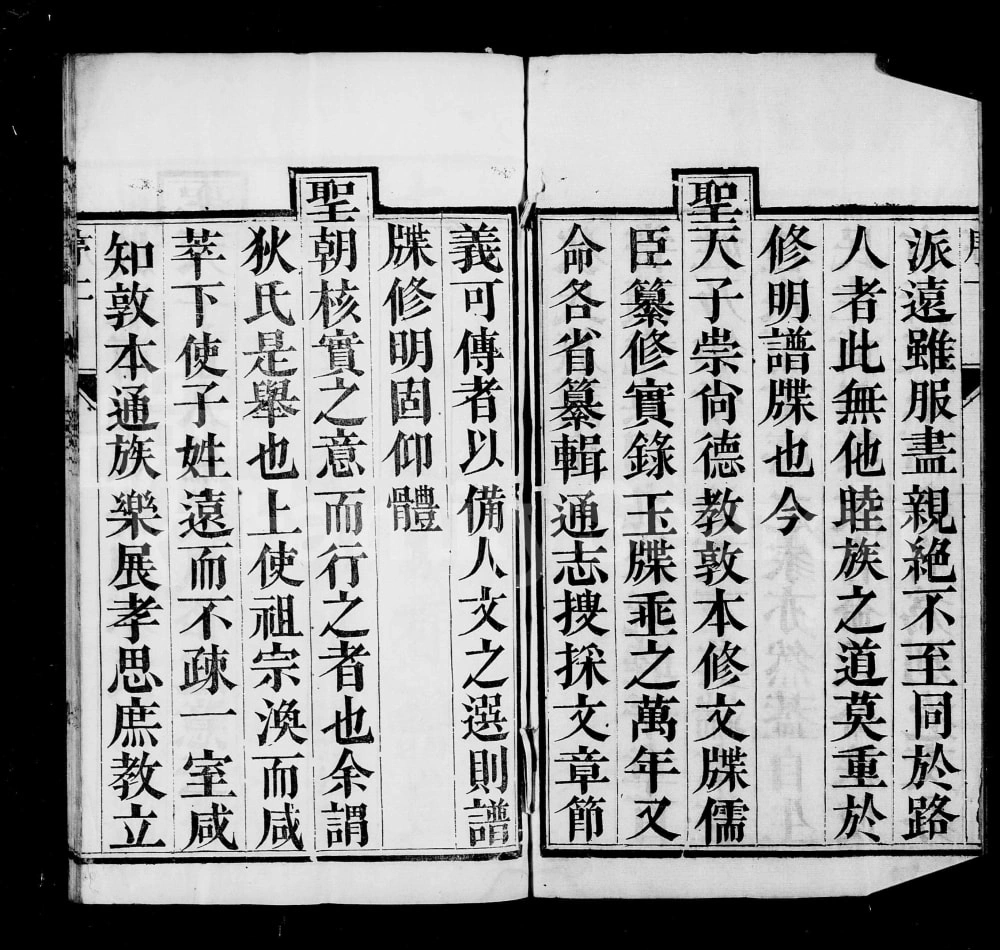 派遠雖服盡親絕不至同於路
人者此無他睦族之道莫重於
修明譜牒也今
聖天子崇尙德教敦本修文牒儒
臣纂修實錄玉牒垂之萬年又
命各省纂輯通志搜採文章節
義可傳者以備人文之選則譜
牒修明固仰體
聖朝核實之意而行之者也余謂
狄氏是舉也上使祖宗渙而咸
萃下使子姓遠而不疎一室咸
知敦本通族樂展孝思庶教立